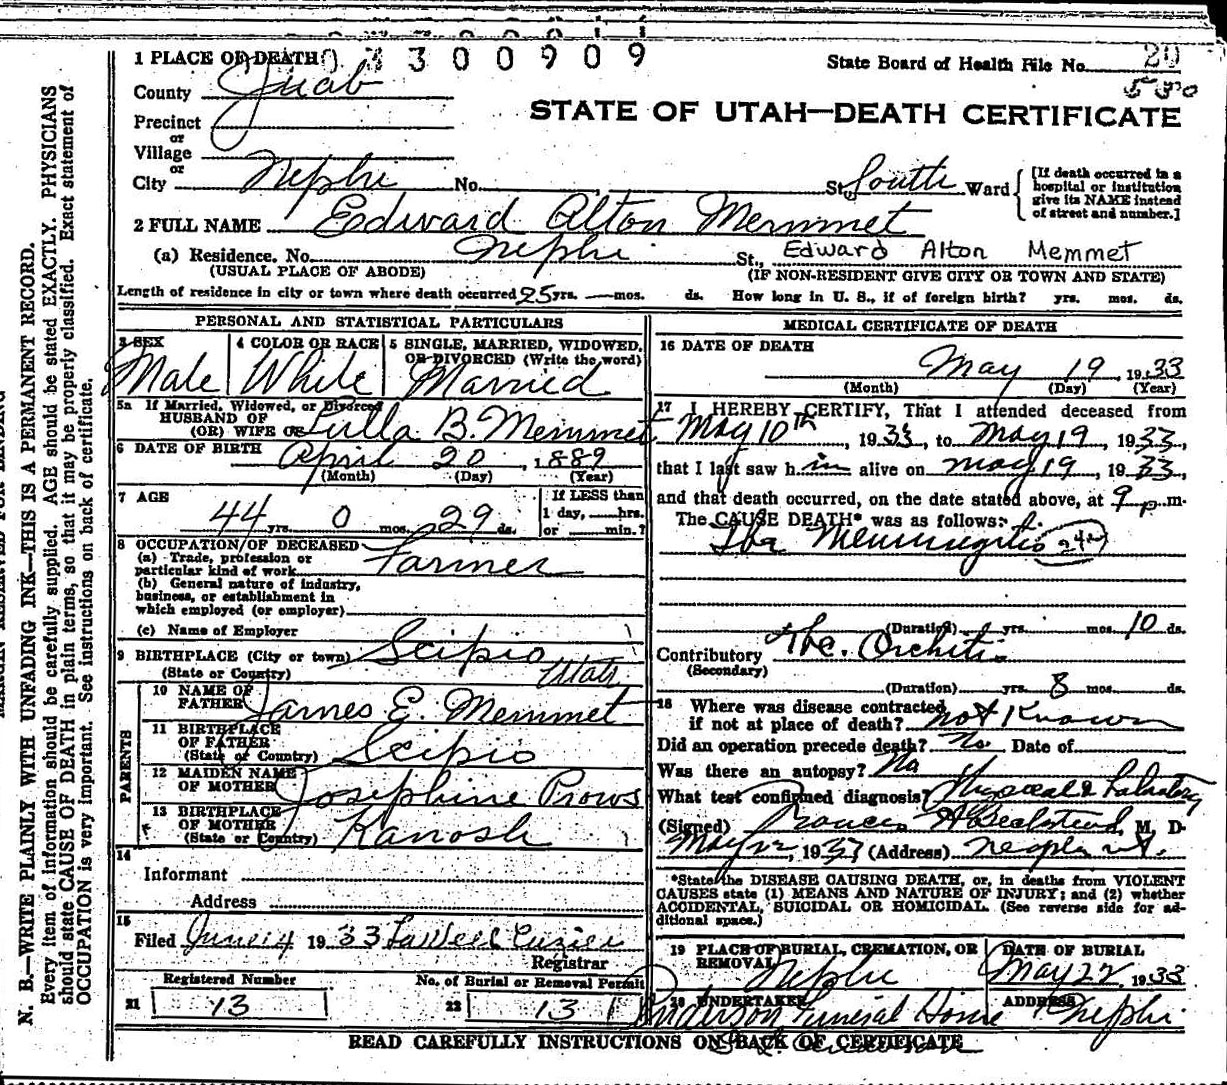 0 3 3 0 0 9 0 9
1 PLACE OF DEATH
State Board of Health File No. 20
550
County Juab
STATE OF UTAH—DEATH CERTIFICATE
Precinct
or
Village
or
City Nephi No. St. South Ward
[If death occurred in a
hospital or institution
give its NAME instead
of street and number.]
2 FULL NAME Edward Alton Memmet
(a) Residence. No. Nephi St., Edward Alton Memmet
(USUAL PLACE OF ABODE) (IF NON-RESIDENT GIVE CITY OR TOWN AND STATE)
Length of residence in city or town where death occurred 25 yrs. — mos. ds. How long in U. S., if of foreign birth? yrs. mos. ds.
PERSONAL AND STATISTICAL PARTICULARS
3 SEX 4 COLOR OR RACE 5 SINGLE, MARRIED, WIDOWED,
OR DIVORCED (Write the word)
Male White Married
5a If Married, Widowed, or Divorced
HUSBAND OF
(OR) WIFE OF Lulla B. Memmet
6 DATE OF BIRTH April 20, 1889
(Month) (Day) (Year)
7 AGE If LESS than
1 day, hrs.
44 yrs. 0 mos. 29 ds. or min.?
8 OCCUPATION OF DECEASED
(a) Trade, profession or
particular kind of work Farmer
(b) General nature of industry,
business, or establishment in
which employed (or employer)
(c) Name of Employer
9 BIRTHPLACE (City or town) Scipio
(State or Country) Utah
PARENTS
10 NAME OF
FATHER James E. Memmet
11 BIRTHPLACE
OF FATHER
(State or Country) Scipio
12 MAIDEN NAME
OF MOTHER Josephine Prows
13 BIRTHPLACE
OF MOTHER
(State or Country) Kanosh
14
Informant
Address
15
Filed June 14 1933
Registrar
Registered Number No. of Burial or Removal Permit
21 13 22 13
MEDICAL CERTIFICATE OF DEATH
16 DATE OF DEATH
May 19 1933
(Month) (Day) (Year)
17 I HEREBY CERTIFY, That I attended deceased from
May 10th, 1933, to May 19, 1933,
that I last saw h im alive on May 19, 1933,
and that death occurred, on the date stated above, at 9 p.m.
The CAUSE DEATH* was as follows:
Tbc Meningitis
(Duration) yrs. mos. 10 ds.
Contributory Tbc. Orchitis
(Secondary)
(Duration) yrs. 8 mos. ds.
18 Where was disease contracted
if not at place of death? Not Known
Did an operation precede death? No. Date of
Was there an autopsy? No
What test confirmed diagnosis? Physical & Laboratory
(Signed) M. D.
May 22, 1933 (Address) Nephi Ut.
*State the DISEASE CAUSING DEATH, or, in deaths from VIOLENT
CAUSES state (1) MEANS AND NATURE OF INJURY; and (2) whether
ACCIDENTAL, SUICIDAL OR HOMICIDAL. (See reverse side for ad-
ditional space.)
19 PLACE OF BURIAL, CREMATION, OR
REMOVAL Nephi
DATE OF BURIAL
May 22, 1933
20 UNDERTAKER
Anderson Funeral Home
ADDRESS
Nephi
READ CAREFULLY INSTRUCTIONS ON BACK OF CERTIFICATE
N. B.—WRITE PLAINLY WITH UNFADING INK—THIS IS A PERMANENT RECORD.
Every item of information should be carefully supplied. AGE should be stated EXACTLY. PHYSICIANS
should state CAUSE OF DEATH in plain terms, so that it may be properly classified. Exact statement of
OCCUPATION is very important. See instructions on back of certificate.